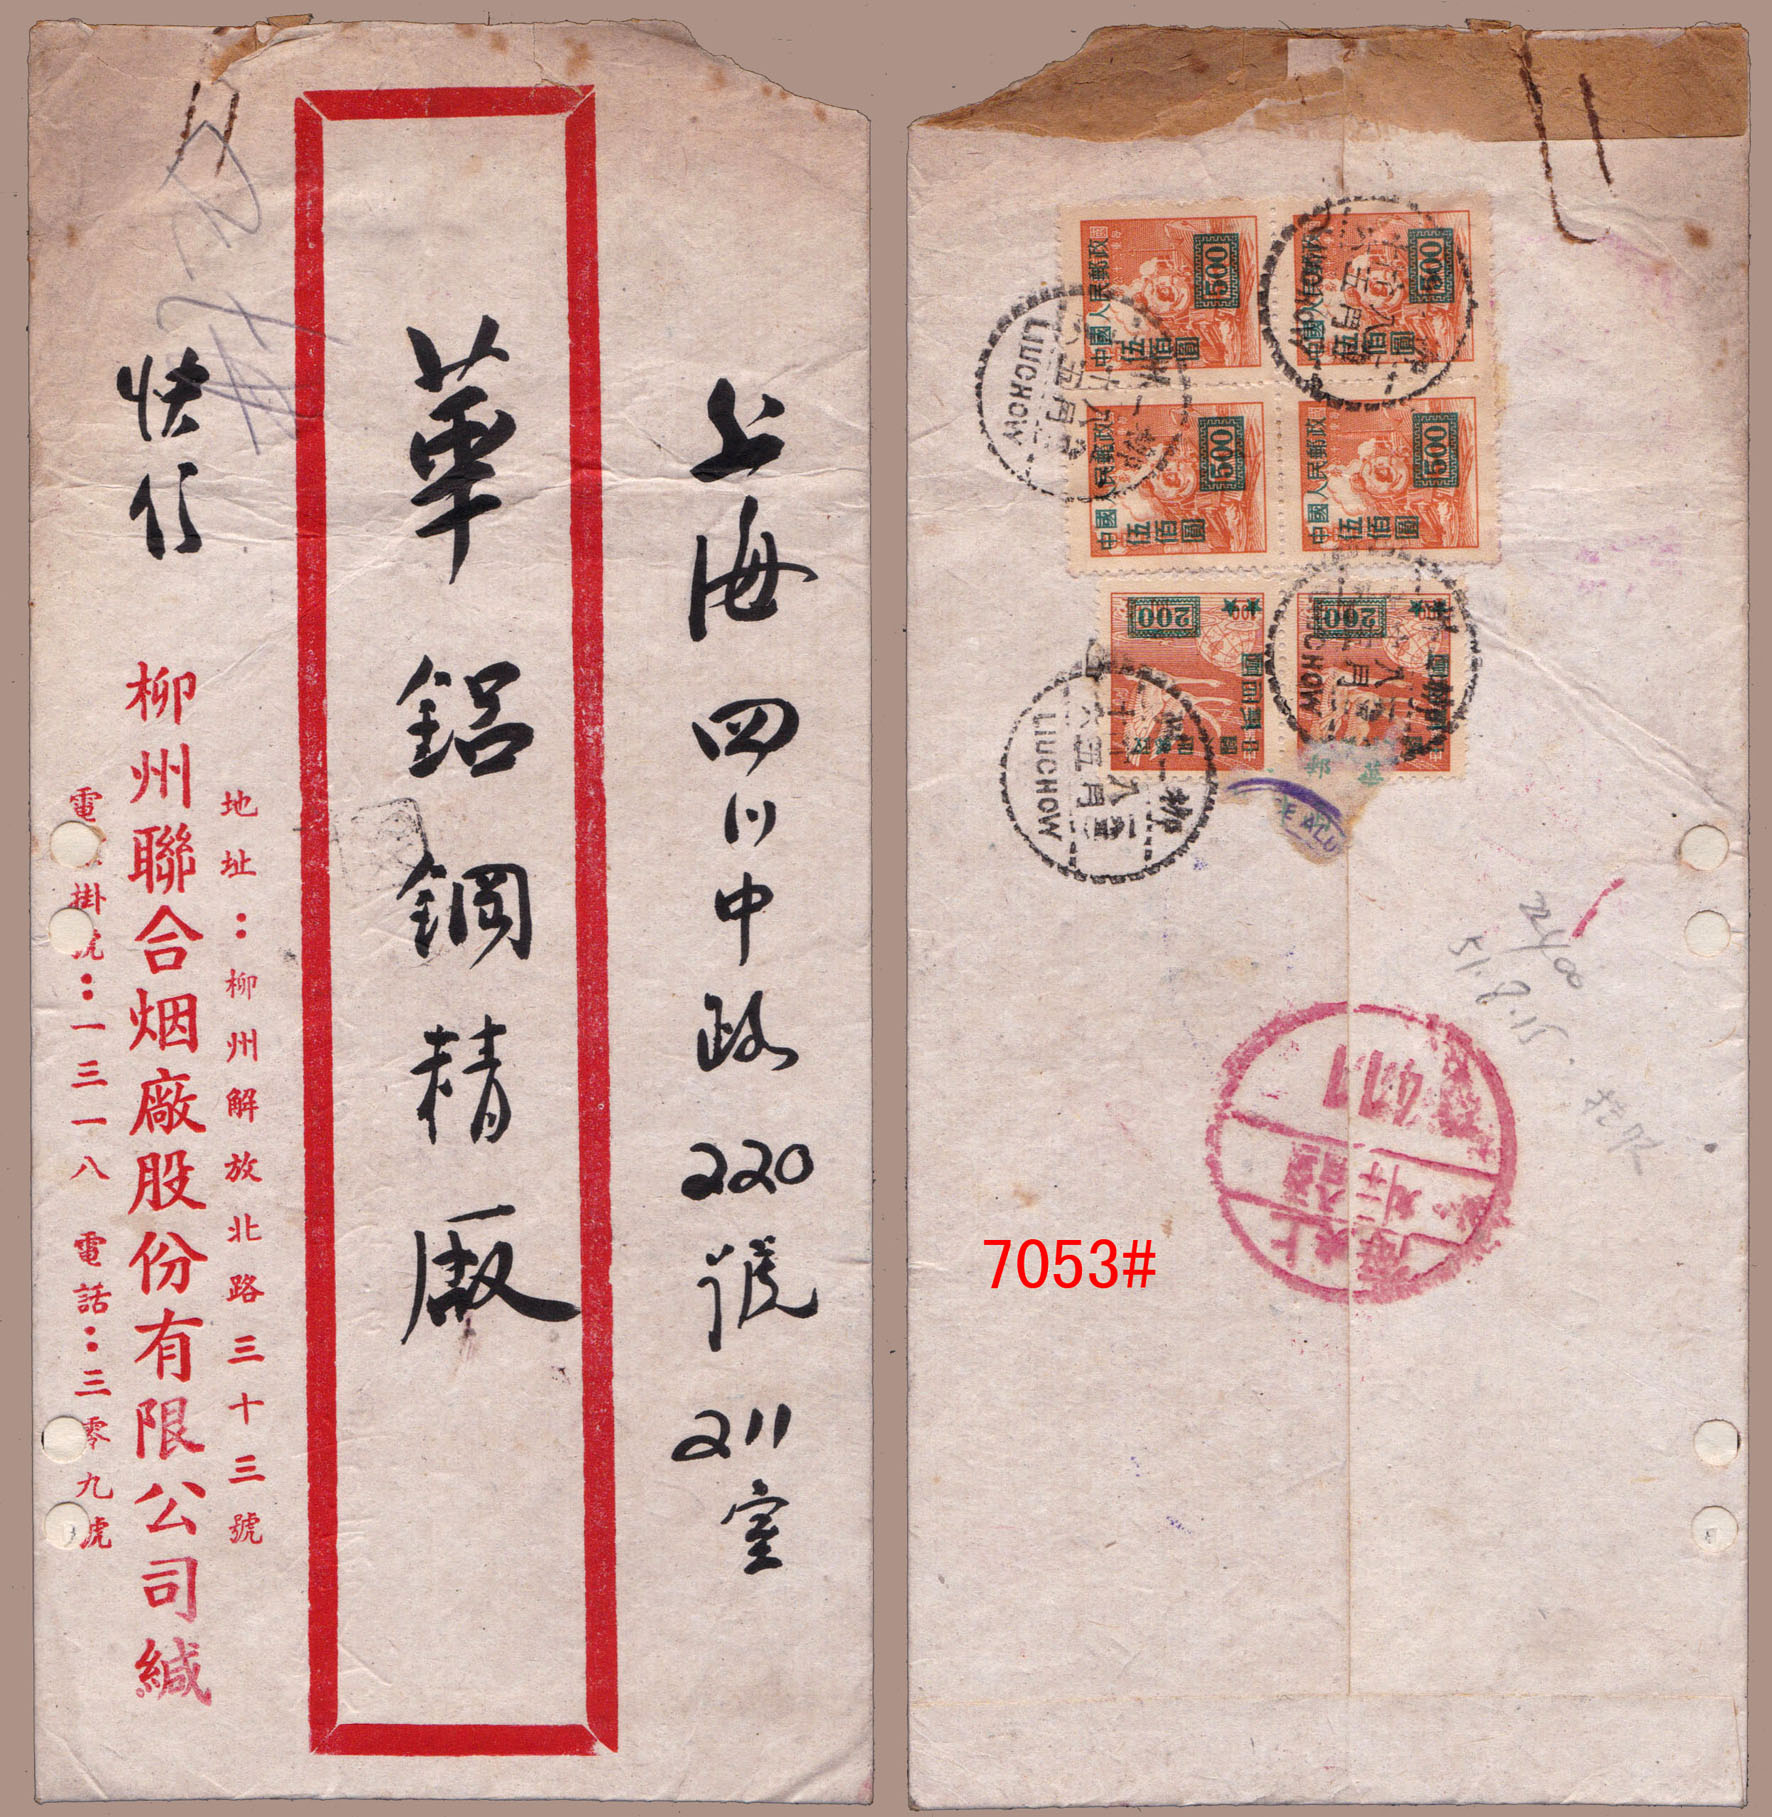 上海四川中路220號211室
華鋁鋼精厰
快信
地址：柳州解放北路三十三號
柳州聯合烟廠股份有限公司緘
電 掛號：一三一八 電話：三零九號
中國人民郵政
500
伍佰圓
中國人民郵政
500
伍佰圓
中國人民郵政
500
伍佰圓
中國人民郵政
500
伍佰圓
200
200
LIUCHOW
LIUCHOW
LIUCHOW
LIUCHOW
2400
51.9.15.
上海
7053#